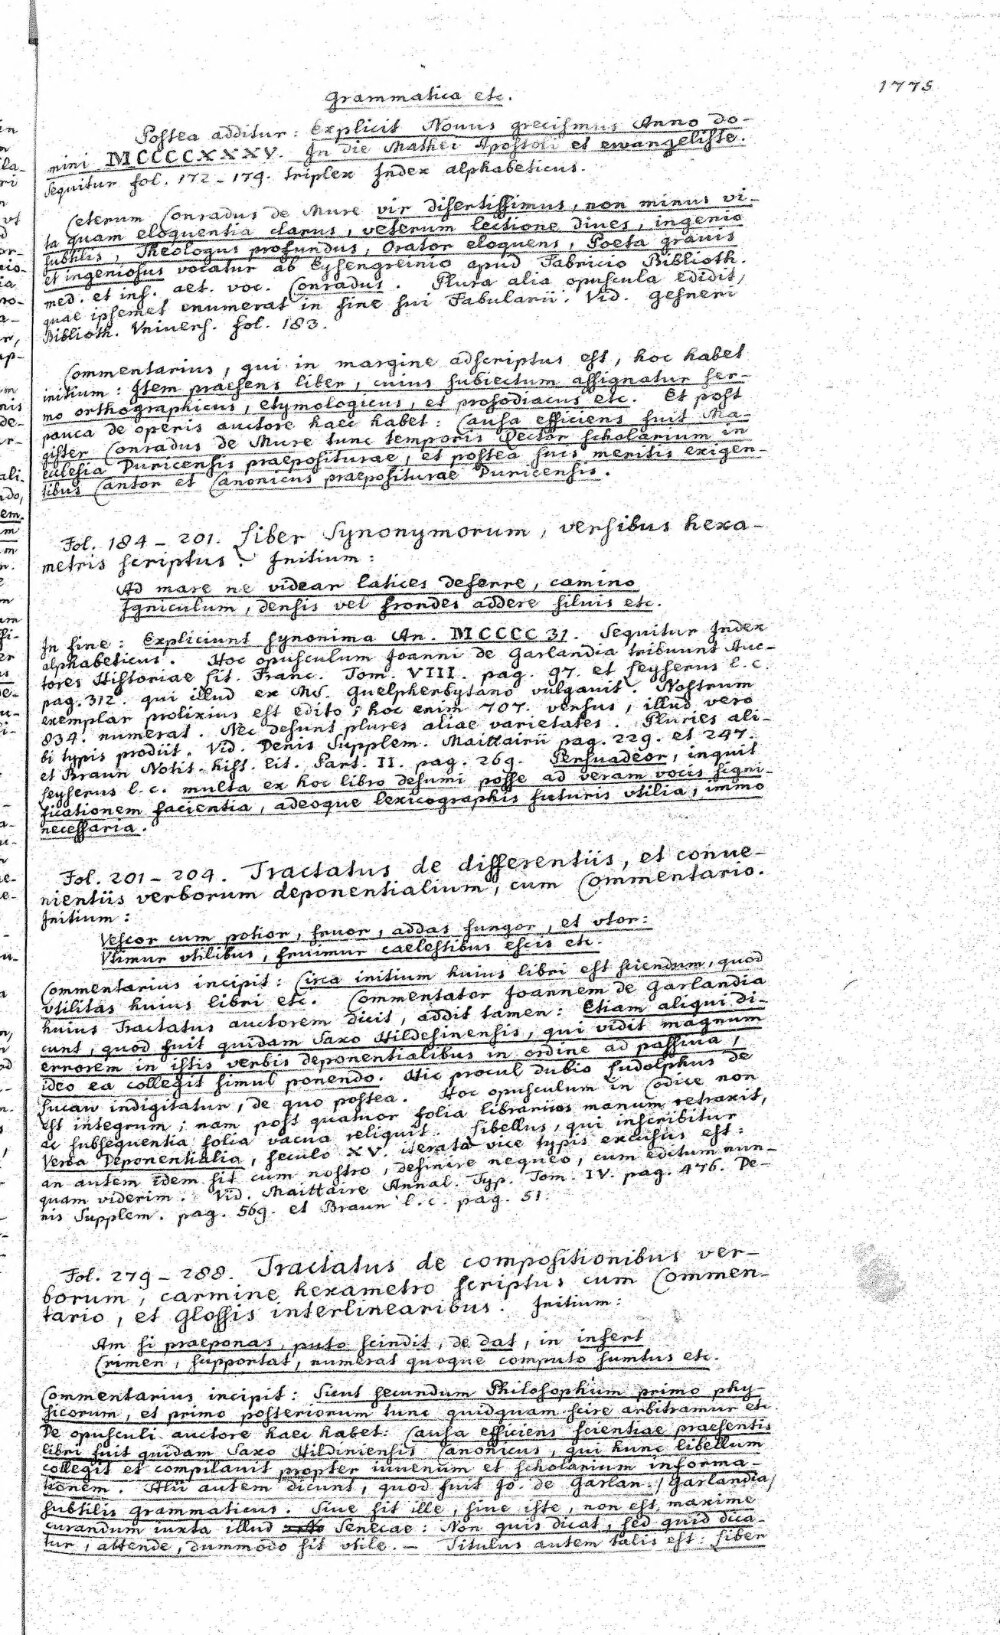 Grammatica etc.
1775
Postea additur: Explicit Novus grecismus Anno Do-
mini MCCCCXXXV. In die Mathei Apostoli et ewangeliste.
Sequitur fol. 172-179. triplex Index alphabeticus.
Ceterum Conradus de Mure vir disertissimus, non minus vi-
ta quam eloquentia clarus, veterum lectione dives, ingenio
subtilis, Theologus profundus, Orator eloquens, Poeta gravis
et ingeniosus vocatur ab Eysengreinio apud Fabricio Biblioth.
med. et inf. aet. voc. Conradus. Plura alia opuscula edidit,
quae ipsemet enumerat in fine sui Fabularii. Vid. Gesneri
Biblioth. Vnivers. fol. 183.
Commentarius, qui in margine adscriptus est, hoc habet
initium: Item praesens liber, cuius subiectum assignatur ser-
mo orthographicus, etymologicus, et prosodiacus etc. Et post
pauca de operis auctore haec habet: Causa efficiens fuit Ma-
gister Conradus de Mure tunc temporis Rector scholarium in
ecclesia Duricensis praepositurae, et postea suis meritis exigen-
tibus Cantor et Canonicus praepositurae Duricensis.
Fol. 184-201. Liber Synonymorum, versibus hexa-
metris scriptus. Initium:
Ad mare ne videar latices deferre, camino
Igniculum, densis vel frondes addere silvis etc.
In fine: Expliciunt synonima An. MCCCC31. Sequitur Index
alphabeticus. Hoc opusculum Joanni de Garlandia tribuunt Auc-
tores Historiae lit. Franc. Tom. VIII. pag. 97. et Leyserus l. c.
pag. 312. qui illud ex Ms. Guelpherbytano vulgavit. Nostrum
exemplar prolixius est edito; hoc enim 707. versus, illud vero
834. numerat. Nec desunt plures aliae varietates. Pluries ali-
bi typis prodiit. Vid. Denis Supplem. Maittairii pag. 229. et 247.
et Braun Notit. hist. lit. Part. II. pag. 269. Persuadeor, inquit
Leyserus l. c. multa ex hoc libro desumi posse ad veram vocis signi-
ficationem facientia, adeoque lexicographis futuris vtilia, immo
necessaria.
Fol. 201-204. Tractatus de differentiis, et conve-
nientiis verborum deponentialium, cum Commentario.
Initium:
Vescor cum potior, fruor, addas fungor, et vtor:
Vtimur vtilibus, fruimur caelestibus escis etc.
Commentarius incipit: Circa initium huius libri est sciendum, quod
vtilitas huius libri etc. Commentator Joannem de Garlandia
huius Tractatus auctorem dicit, addit tamen: Etiam aliqui di-
cunt, quod fuit quidam Saxo Hildesinensis, qui vidit magnum
errorem in istis verbis deponentialibus in ordine ad passiva,
ideo ea collegit simul ponendo. Hic procul dubio Ludolphus de
Lucaw indigitatur, de quo postea. Hoc opusculum in Codice non
est integrum; nam post quatuor folia librarius manum retraxit,
ac subsequentia folia vacua reliquit. Libellus, qui inscribitur
Verba Deponentialia, seculo XV. iterata vice typis excusus est:
an autem idem sit cum nostro, definire nequeo, cum editum nun-
quam viderim. Vid. Maittaire Annal. Typ. Tom. IV. pag. 476. De-
nis Supplem. pag. 569. et Braun l. c. pag. 51.
Fol. 279-288. Tractatus de compositionibus ver-
borum, carmine hexametro scriptus cum Commen-
tario, et Glossis interlinearibus. Initium:
Am si praeponas, puto scindit, de dat, in insert
Crimen, supportat, numerat quoque computo sumtus etc.
Commentarius incipit: Sicut secundum Philosophum primo phy-
sicorum, et primo posteriorum tunc quidquam scire arbitramur etc.
De opusculi auctore haec habet: Causa efficiens scientiae praesentis
libri fuit quidam Saxo Hildiniensis Canonicus, qui hunc libellum
collegit et compilavit propter iuvenum et scholarium informa-
tionem. Alii autem dicunt, quod fuit Jo. de Garlan. (Garlandia)
subtilis grammaticus. Sive sit ille, sive iste, non est maxime
curandum iuxta illud Senecae: Non quis dicat, sed quid dica-
tur, attende, dummodo sit vtile. — Titulus autem talis est: Liber